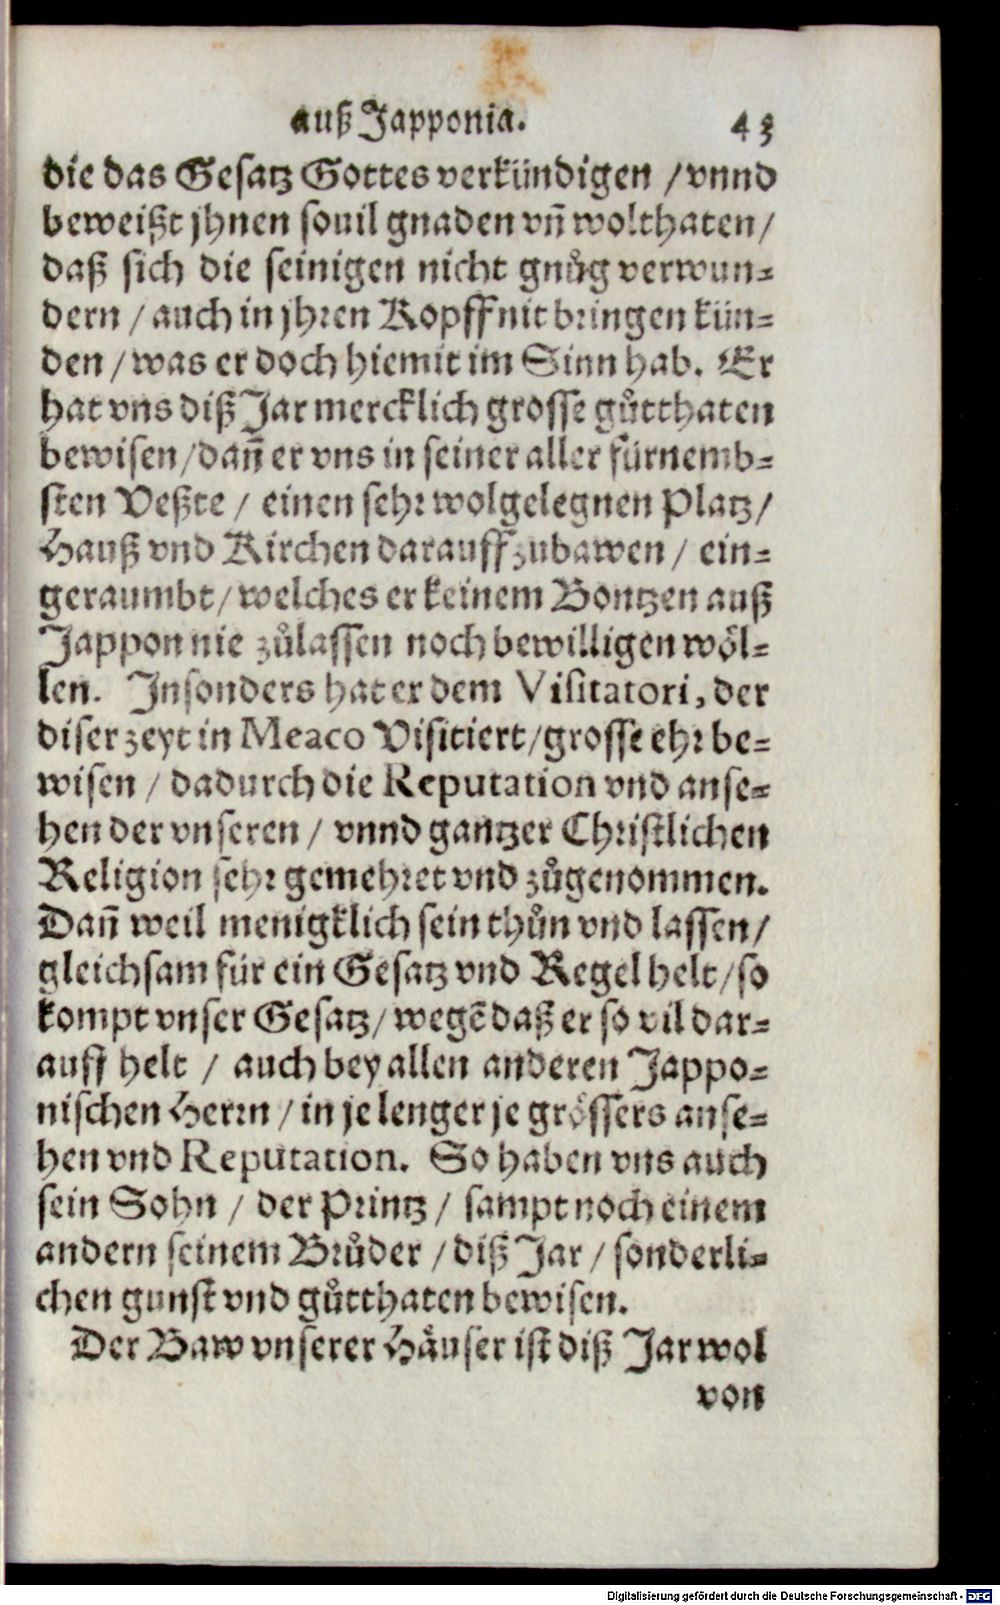 auß Japponia. 43
die das Gesatz Gottes verkündigen / vnnd
beweißt jhnen souil gnaden vñ wolthaten /
daß sich die seinigen nicht gnůg verwun-
dern / auch in jhren Kopff nit bringen kün-
den / was er doch hiemit im Sinn hab. Er
hat vns diß Jar mercklich grosse gůtthaten
bewisen / dañ er vns in seiner aller fürnemb-
sten Veßte / einen sehr wolgelegnen Platz /
Hauß vnd Kirchen darauff zubawen / ein-
geraumbt / welches er keinem Bontzen auß
Jappon nie zůlassen noch bewilligen wöl-
len. Insonders hat er dem Visitatori, der
diser zeyt in Meaco Visitiert / grosse ehr be-
wisen / dadurch die Reputation vnd anse-
hen der vnseren / vnnd gantzer Christlichen
Religion sehr gemehret vnd zůgenommen.
Dañ weil menigklich sein thůn vnd lassen /
gleichsam für ein Gesatz vnd Regel helt / so
kompt vnser Gesatz / wegẽ daß er so vil dar-
auff helt / auch bey allen anderen Jappo-
nischen Herrn / in je lenger je grössers anse-
hen vnd Reputation. So haben vns auch
sein Sohn / der Printz / sampt noch einem
andern seinem Brůder / diß Jar / sonderli-
chen gunst vnd gůtthaten bewisen.
Der Baw vnserer Häuser ist diß Jar wol
von
Digitalisierung gefördert durch die Deutsche Forschungsgemeinschaft - DFG